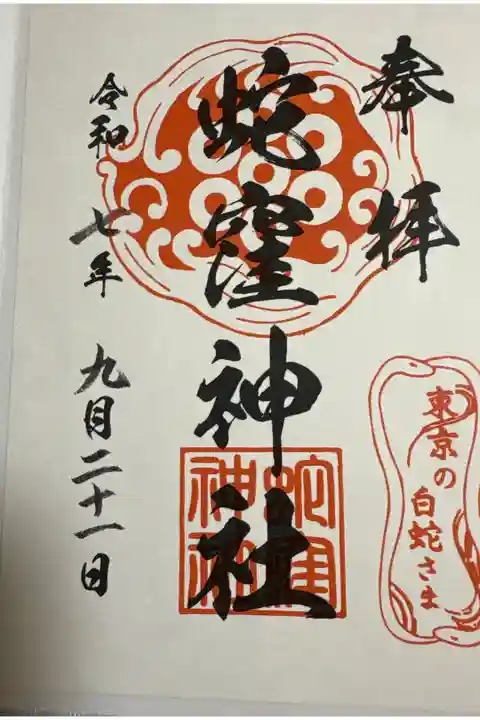 奉拝
蛇窪神社
蛇窪神社
令和七年九月二十一日
東京の
白蛇さま